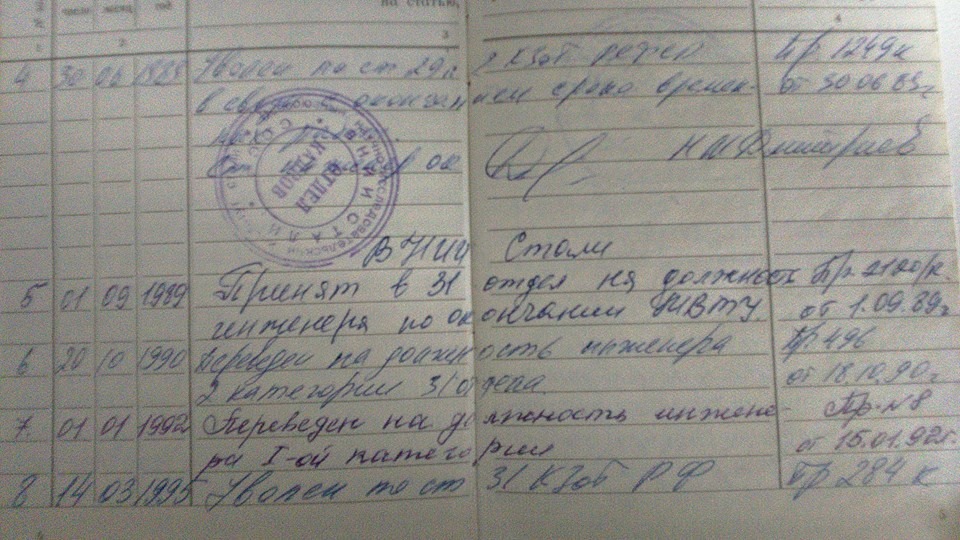 число месяц год на статью,
1 2 3 4
4 30 06 1989 Уволен по ст 29 п 2 КЗоТ РСФСР Пр. 1249к
в связи с окончанием срока времен- от 30 06 89г
Ст. ок Н И Дмитриев
ВНИИ Стали
5 01 09 1989 Принят в 31 отдел на должность Пр. 2120/к.
инженера по окончании МВТУ. от 1.09.89г
6 20 10 1990 Переведен на должность инженера Пр. 496
2 категории 31 отдела от 18.10.90г
7. 01 01 1992 Переведен на должность инжене- Пр. N8
ра I-ой категории от 15.01.92г.
8 14 03 1995 Уволен по ст 31 КЗоТ РФ Пр 284 к
ВНИИ СТАЛИ
ОТДЕЛ
КАДРОВ
5